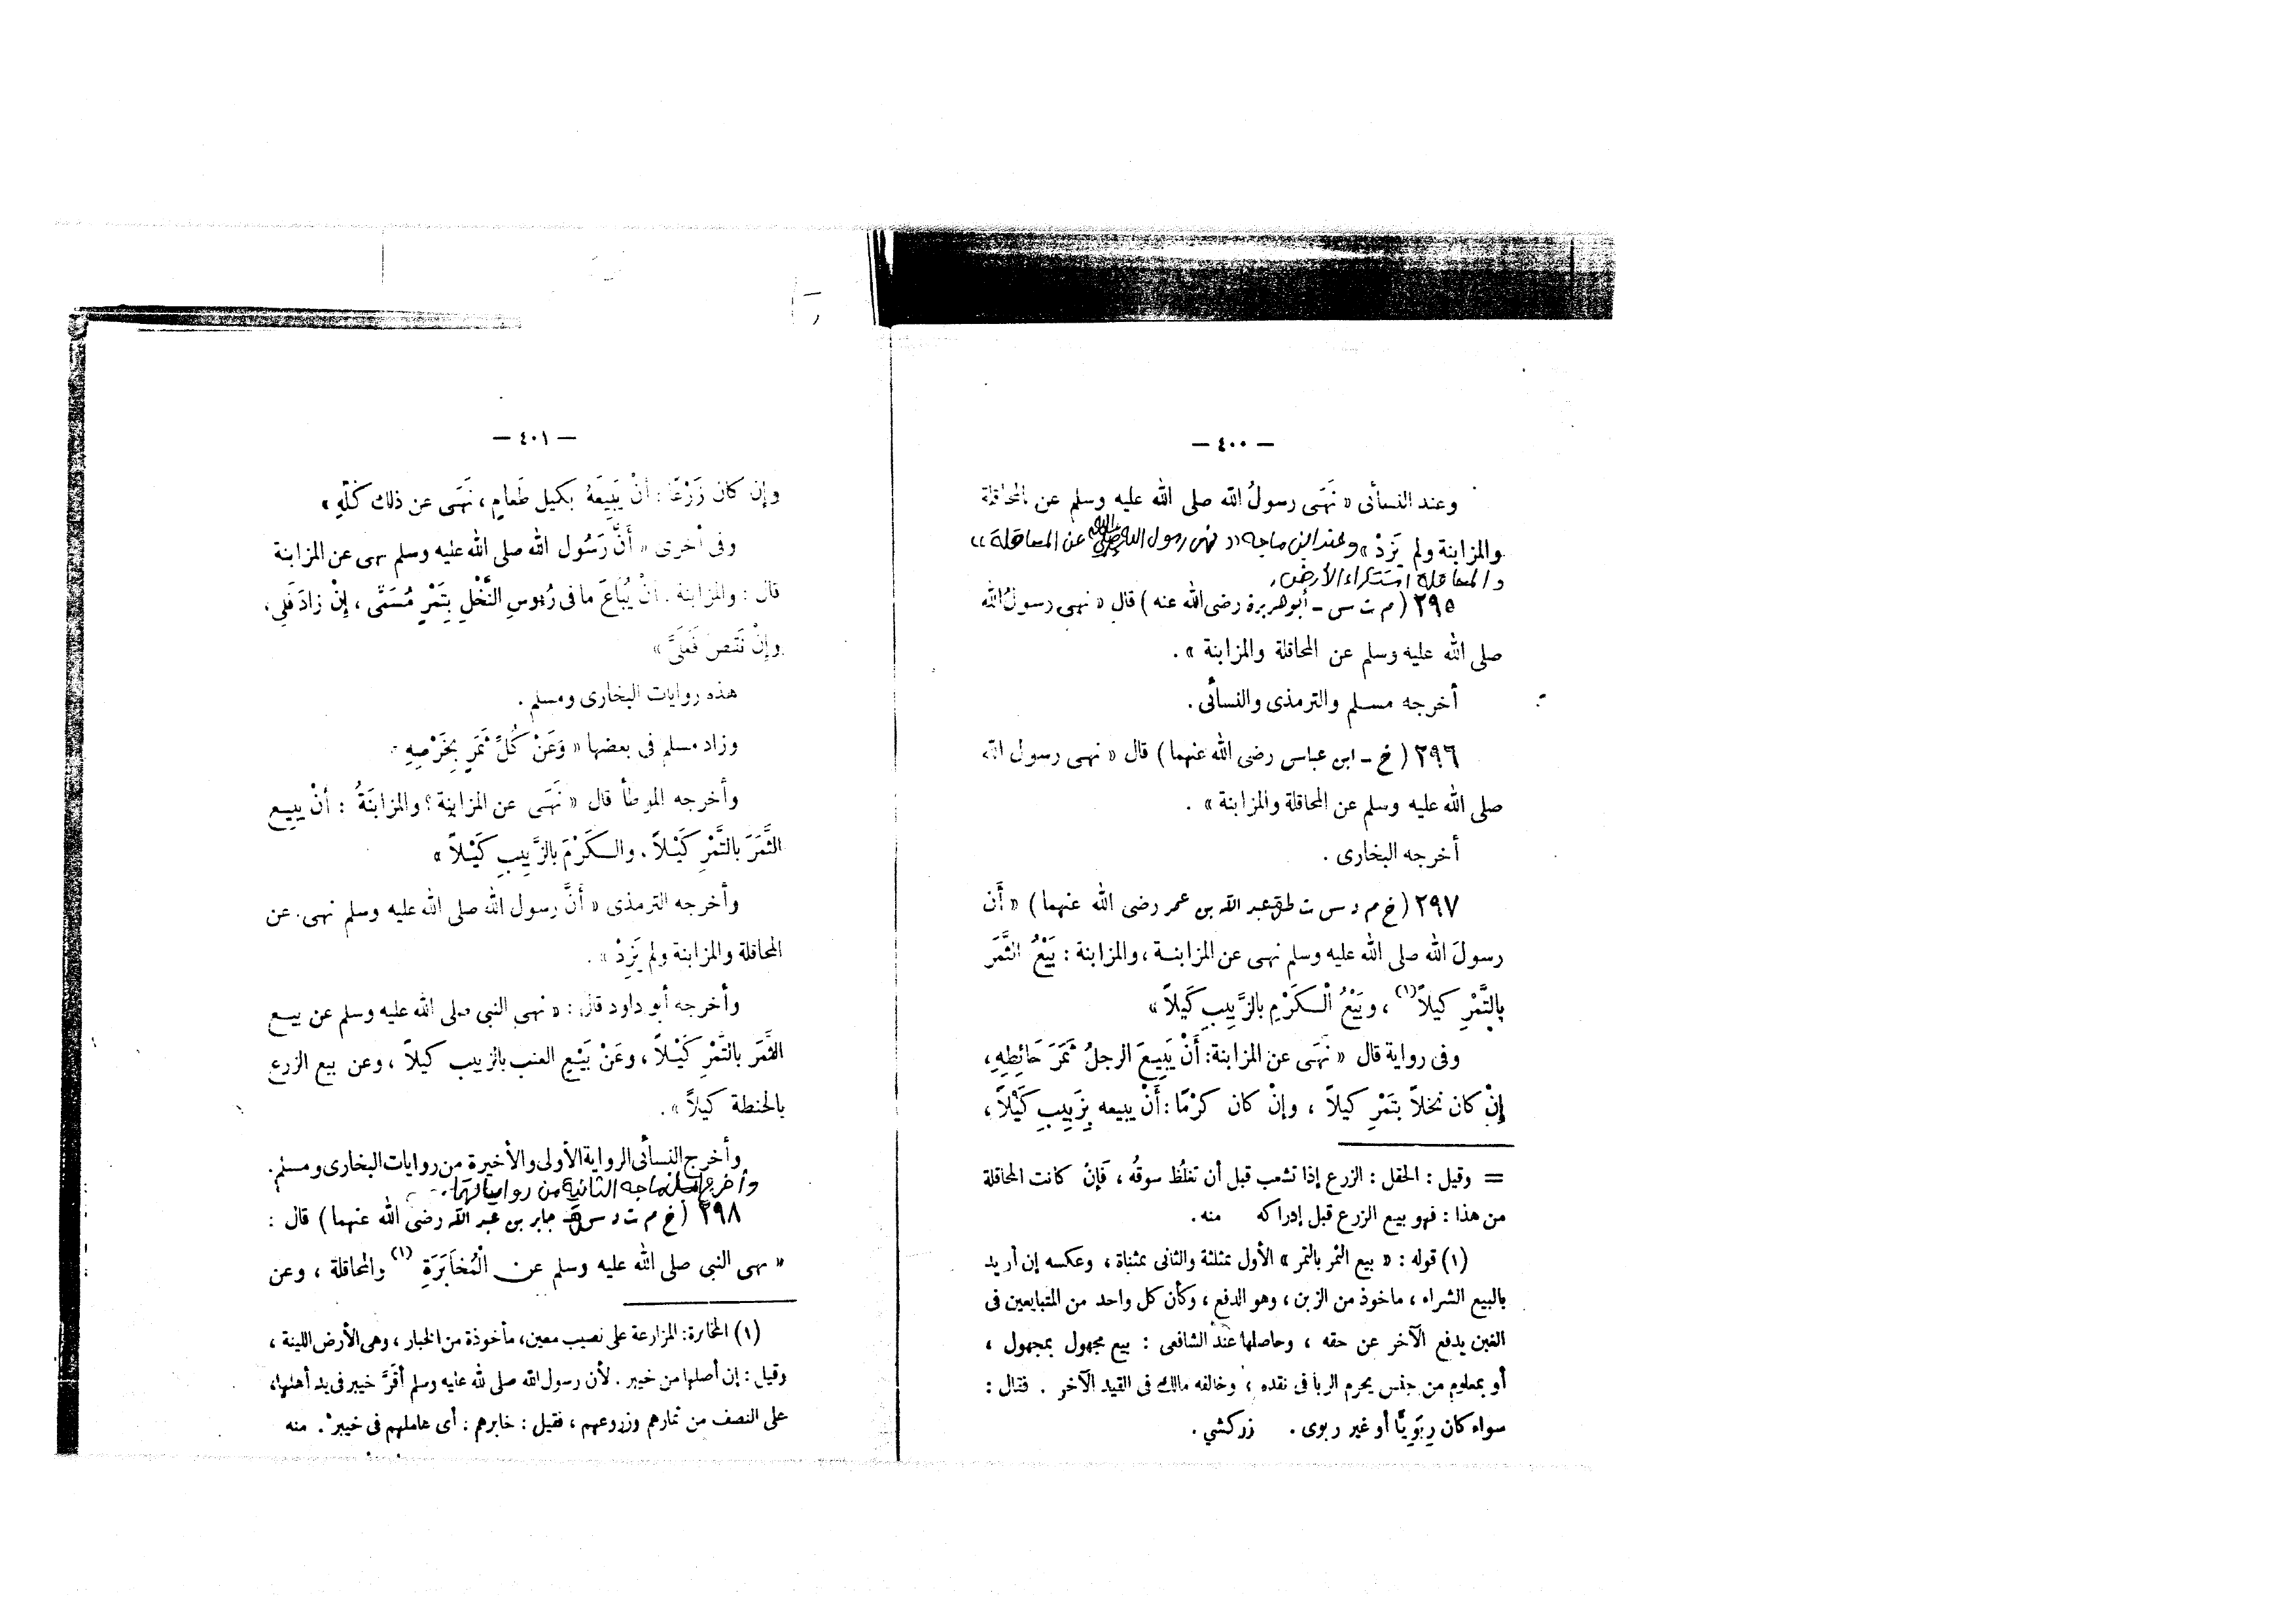 — ٤٠٠ —
وعند النسائى « نَهَى رسولُ الله صلى الله عليه وسلم عن المحاقلة
والمزابنة ولم يَزِدْ » وعند ابن ماجه « نهى رسول الله صلى الله عليه وسلم عن المحاقلة »
والمحاقلة استكراء الأرض.
٢٩٥ ( م ت س - أبو هريرة رضى الله عنه ) قال « نهى رسولُ الله
صلى الله عليه وسلم عن المحاقلة والمزابنة » .
أخرجه مسلم والترمذى والنسائى .
٢٩٦ ( خ - ابن عباس رضى الله عنهما ) قال « نهى رسول الله
صلى الله عليه وسلم عن المحاقلة والمزابنة » .
أخرجه البخارى .
٢٩٧ ( خ م د س ت ط ق عبد الله بن عمر رضى الله عنهما ) « أَن
رسولَ الله صلى الله عليه وسلم نهى عن المزابنة ، والمزابنة : بَيْعُ الثَّمَرَ
بِالتَّمْرِ كيلاً (١) ، وبَيْعُ الْكَرْمِ بالزَّبِيبِ كَيلاً »
وفى رواية قال « نَهَى عن المزابنة : أَنْ يَبِيعَ الرجلُ ثَمَرَ حَائِطِهِ ،
إِنْ كان نخلاً بِتَمْرٍ كيلاً ، وإنْ كان كَرْمًا : أَنْ يبيعه بِزَبِيبٍ كَيْلاً ،
= وقيل : الحقل : الزرع إذا تشعب قبل أن تغلُظ سوقُه ، فَإِنْ كانت المحاقلة
من هذا : فهو بيع الزرع قبل إدراكه منه .
(١) قوله : « بيع الثمر بالتمر » الأول بمثلثة والثانى بمثناة ، وعكسه إن أريد
بالبيع الشراء ، مأخوذ من الزبن ، وهو الدفع ، وكأن كل واحد من المتبايعين فى
الغبن يدفع الآخر عن حقه ، وحاصلها عند الشافعى : بيع مجهول بمجهول ،
أو بمعلوم من جنس يحرم الربا فى نقده ، وخالفه مالك فى القيد الآخر . فقال :
سواء كان رِبَوِيًّا أو غير ربوى . زركشي .
— ٤٠١ —
وإن كان زَرْعًا : أَنْ يَبِيعَهُ بكيل طَعامٍ ، نَهَى عن ذلك كُلِّهِ »
وفى أخرى « أَنَّ رَسُول الله صلى الله عليه وسلم نهى عن المزابنة
قال : والمزابنة . أنْ يُبَاعَ ما فى رُءوسِ النَّخْلِ بِتَمْرٍ مُسَمًّى ، إِنْ زادَ فَلِى ،
وإنْ نَقَصَ فَعَلَىَّ »
هذه روايات البخارى ومسلم .
وزاد مسلم فى بعضها « وَعَنْ كُلِّ ثَمَرٍ بِخَرْصِهِ »
وأخرجه الموطأ قال « نَهَى عن المزابنة ؛ والمزابَنَةُ : أَنْ يبيع
الثَّمَرَ بالتَّمْرِ كَيْلاً . والكَرْمَ بالزَّبِيبِ كَيْلاً »
وأخرجه الترمذى « أَنَّ رسول الله صلى الله عليه وسلم نهى . عن
المحاقلة والمزابنة ولم يَزِدْ » .
وأخرجه أبو داود قال : « نهى النبى صلى الله عليه وسلم عن بيع
الثَّمَرَ بالتَّمْرِ كَيْلاً ، وعَنْ بَيْعِ العنب بالزبيب كيلاً ، وعن بيع الزرع
بالحنطة كيلاً » .
وأخرج النسائى الرواية الأولى والأخيرة من روايات البخارى ومسلم .
وأخرج ابن ماجه الثانية من رواياتهما .
٢٩٨ ( خ م ت د س ق جابر بن عبد الله رضى الله عنهما ) قال :
« نهى النبى صلى الله عليه وسلم عن الْمُخَابَرَةِ (١) والمحاقلة ، وعن
(١) المخابرة : المزارعة على نصيب معين ، مأخوذة من الخبار ، وهى الأرض اللينة ،
وقيل : إن أصلها من خيبر . لأن رسول الله صلى لله عليه وسلم أقَرَّ خيبر فى يد أهلها ،
على النصف من ثمارهم وزروعهم ، فقيل : خابرهم : أى عاملهم فى خيبر . منه